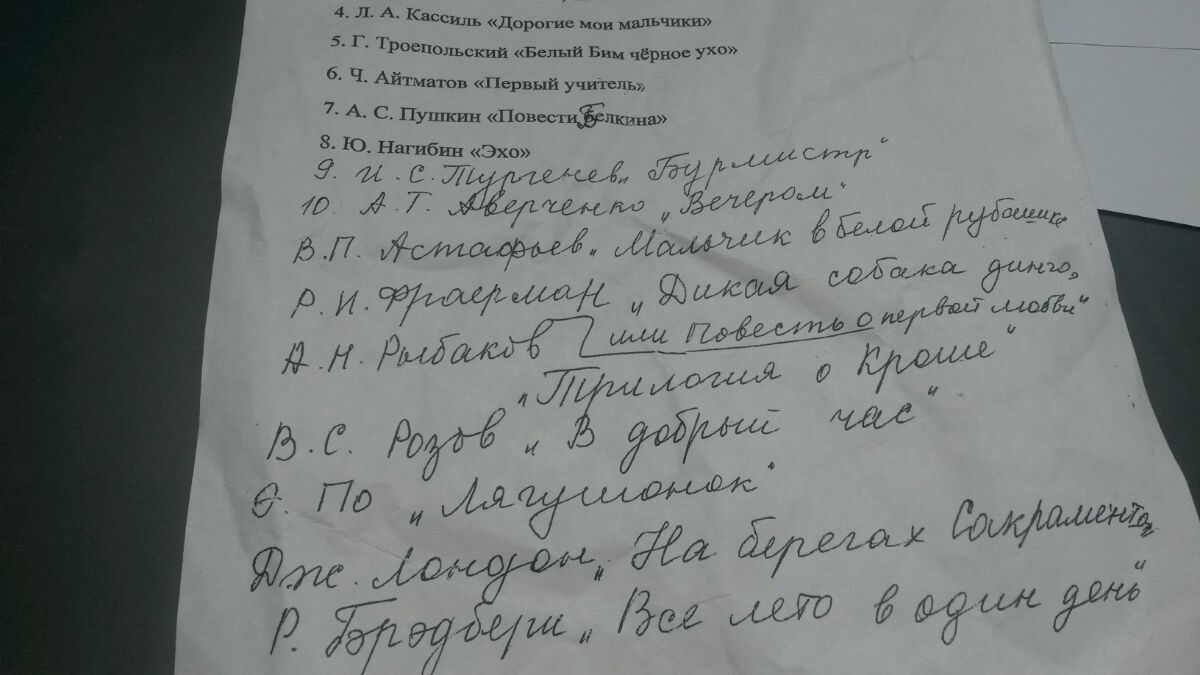 4. Л. А. Кассиль «Дорогие мои мальчики»
5. Г. Троепольский «Белый Бим чёрное ухо»
6. Ч. Айтматов «Первый учитель»
7. А. С. Пушкин «Повести Белкина»
8. Ю. Нагибин «Эхо»
9. И. С. Тургенев „Бурмистр"
10. А. Т. Аверченко „Вечером"
В. П. Астафьев „Мальчик в белой рубашке
Р. И. Фраерман „Дикая собака динго,
или Повесть о первой любви"
А. Н. Рыбаков
„Трилогия о Кроше"
В. С. Розов „В добрый час"
Э. По „Лягушонок"
Дж. Лондон „На берегах Сакраменто"
Р. Бэрэдбери „Все лето в один день"